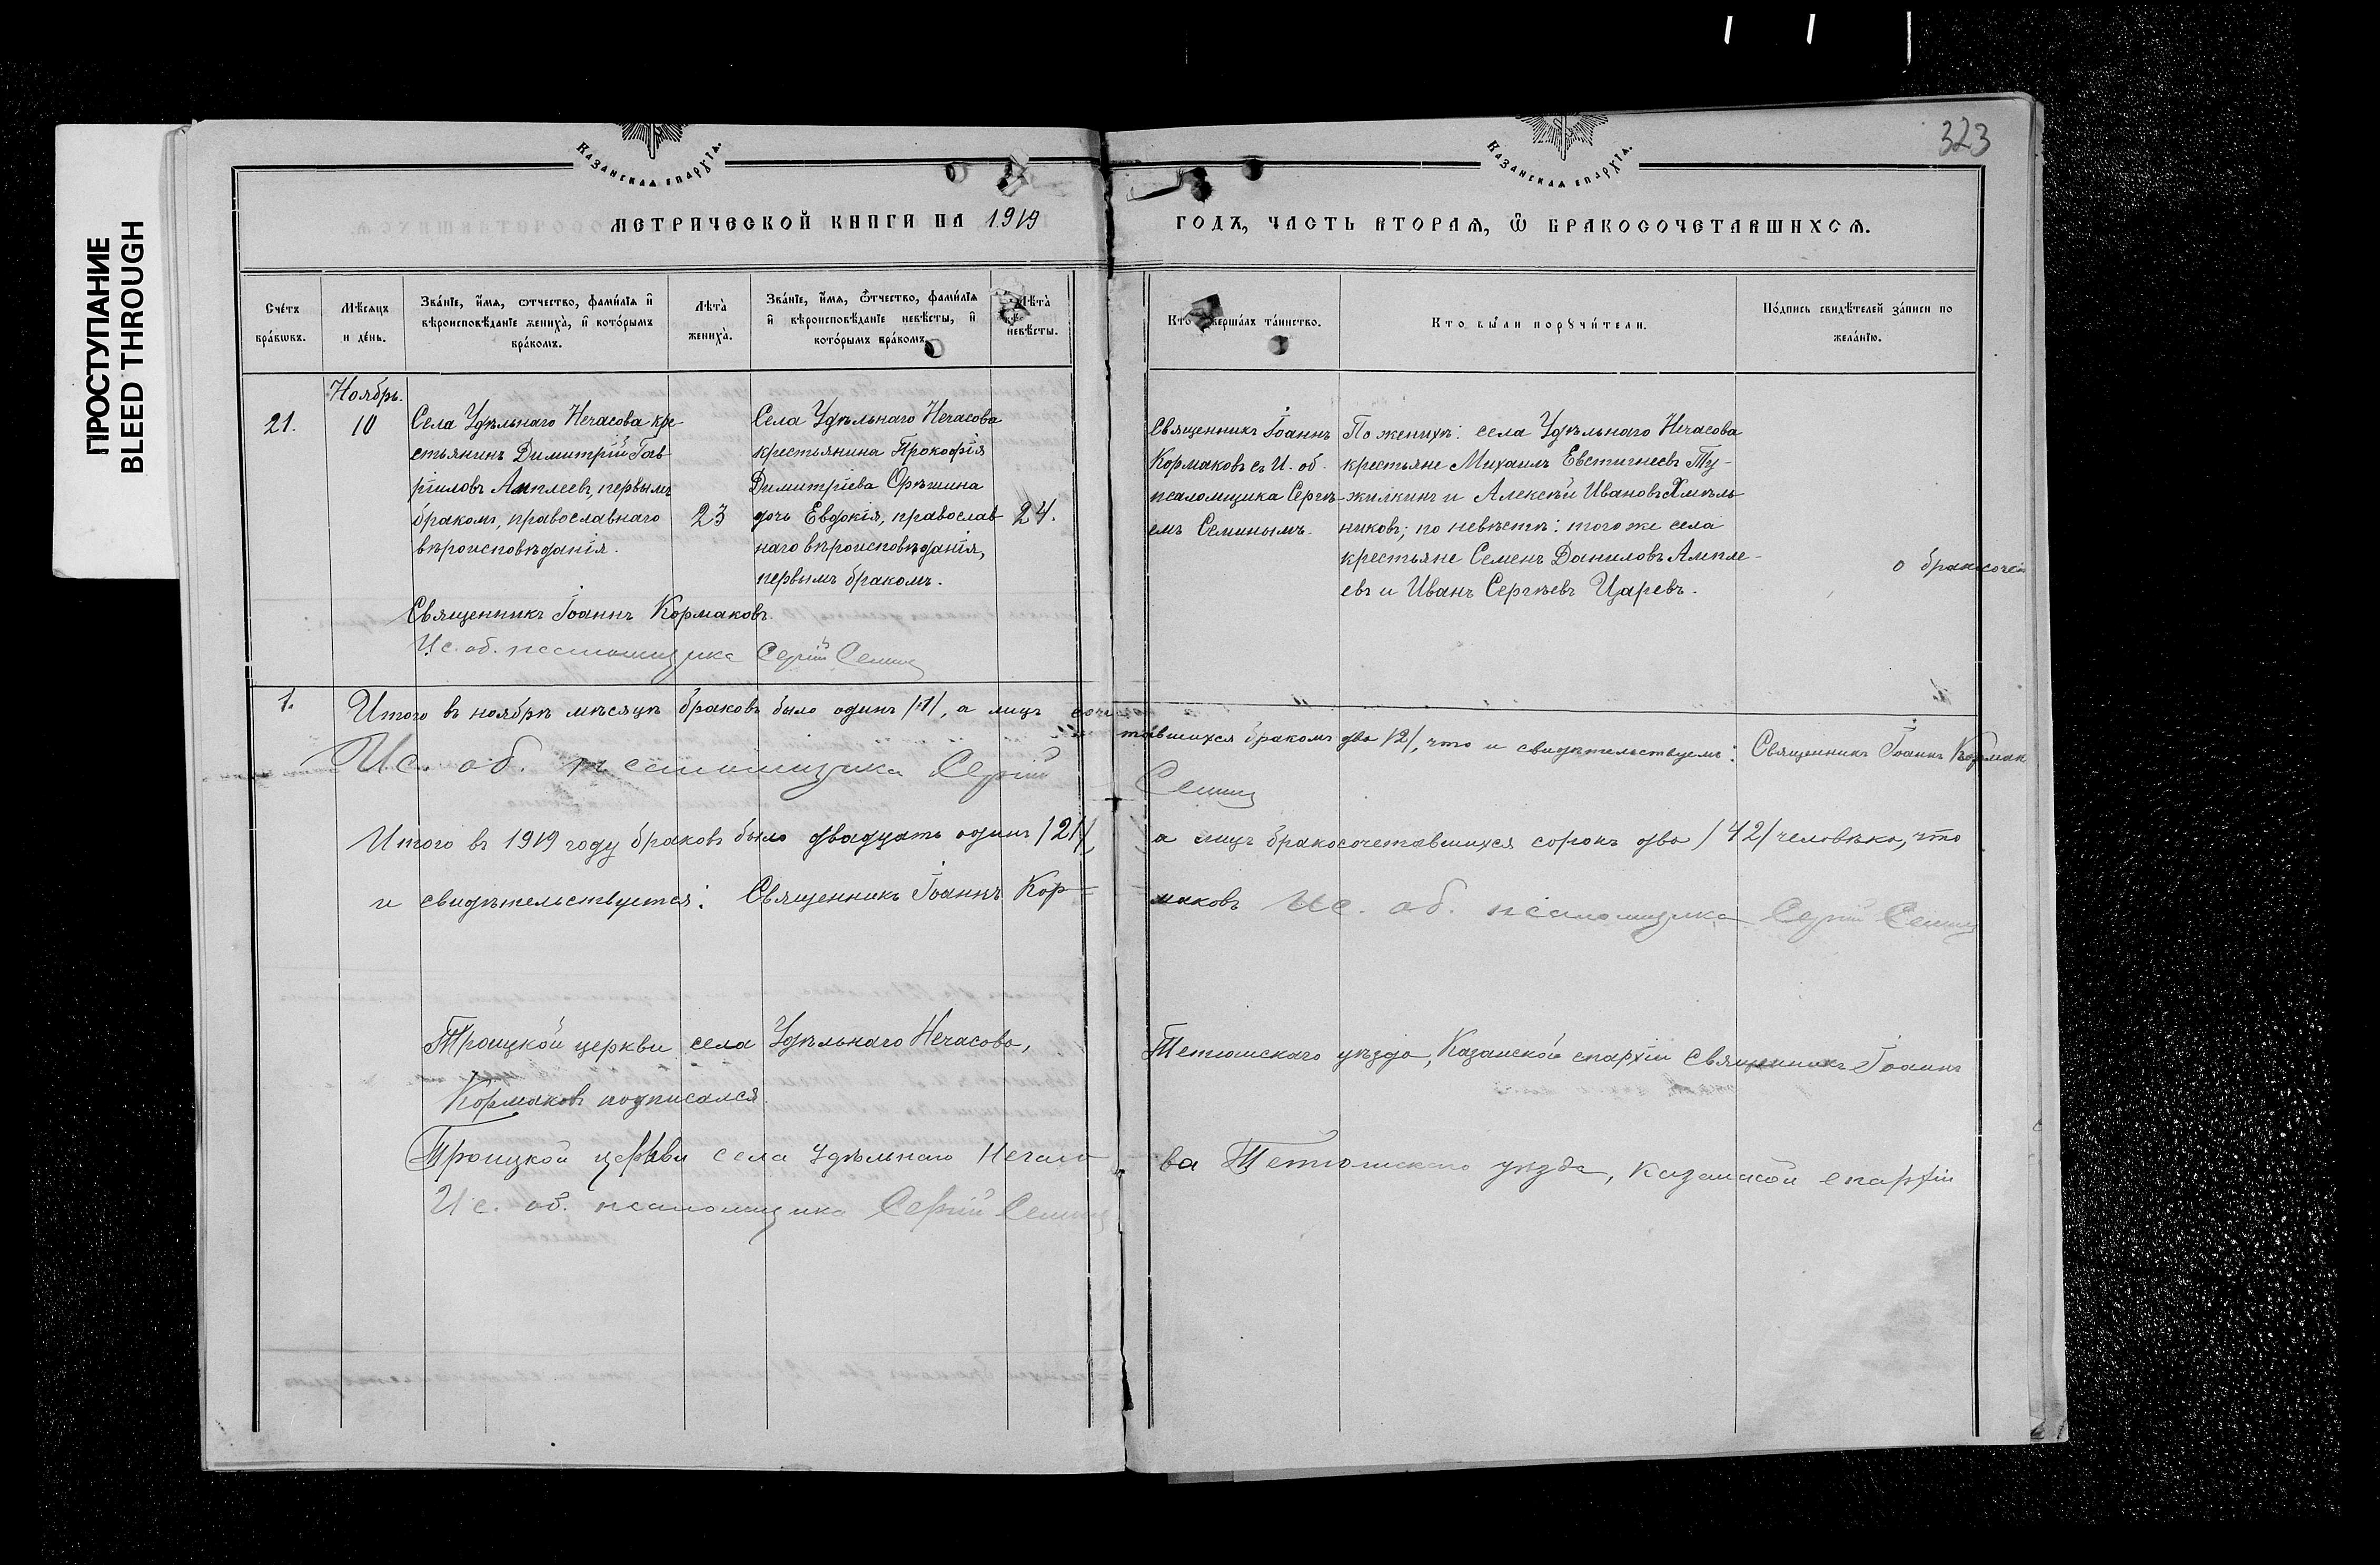 ПРОСТУПАНИЕ
BLEED THROUGH
323
Казанская епархїя.
Казанская епархїя.
МЕТРИЧЕСКОЙ КНИГИ НА 1919
ГОДЪ, ЧАСТЬ ВТОРАѦ, Ѽ БРАКОСОЧЕТАВШИХСѦ.
Сче́тъ бра́кѡвъ.
Мѣсѧцъ и де́нь.
Зва́нїе, и҆́мѧ, ѻ҆́тчество, фами́лїѧ и҆ вѣроисповѣ́данїе жениха̀, и҆ кото́рымъ бра́комъ.
Лѣта̀ жениха̀.
Зва́нїе, и҆́мѧ, ѻ҆́тчество, фами́лїѧ и҆ вѣроисповѣ́данїе невѣ́сты, и҆ кото́рымъ бра́комъ.
Лѣта̀ невѣ́сты.
Кто
верша́лъ та́инство.
Кто бы́ли порꙋчи́тели.
По́дпись свидѣ́телей за́писи по жела́нїю.
Ноябрь.
21.
10
Села Удѣльнаго Нечасова кре-
стьянинъ Димитрій Гав-
ріиловъ Амплеевъ, первымъ
бракомъ, православнаго
вѣроисповѣданія.
23
Села Удѣльнаго Нечасова
крестьянина Прокофія
Димитріева Орѣшина
дочь Евдокія, православ-
наго вѣроисповѣданія,
первымъ бракомъ.
24.
Священникъ Іоаннъ
Кормаковъ съ И. об.
псаломщика Сергѣ-
емъ Семинымъ.
По женихѣ: села Удѣльнаго Нечасова
крестьяне Михаилъ Евстигнеевъ Ту-
жилкинъ и Алексѣй Ивановъ Хмѣль-
никовъ; по невѣстѣ: того же села
крестьяне Семенъ Даниловъ Ампле-
евъ и Иванъ Сергѣевъ Царевъ.
о бракосоче
Священникъ Іоаннъ Кормаковъ.
Ис. об. псаломщика Сергій Семинъ
1.
Итого въ ноябрѣ мѣсяцѣ браковъ было одинъ /1/, а лицъ соче-
тавшихся бракомъ два /2/, что и свидѣтельствуемъ: Священникъ Іоаннъ Кормак
Ис. об. псаломщика Сергій
Семинъ
Итого въ 1919 году браковъ было двадцать одинъ /21/,
а лицъ бракосочетавшихся сорокъ два /42/ человѣка, что
и свидѣтельствуется: Священникъ Іоаннъ Кор=
маковъ Ис. об. псаломщика Сергій Семинъ
Троицкой церкви села Удѣльнаго Нечасова,
Тетюшскаго уѣзда, Казанской епархіи священникъ Іоаннъ
Кормаковъ подписался.
Троицкой церкви села Удѣльнаго Нечасо
ва Тетюшскаго уѣзда, Казанской епархіи
Ис. об. псаломщика Сергій Семинъ